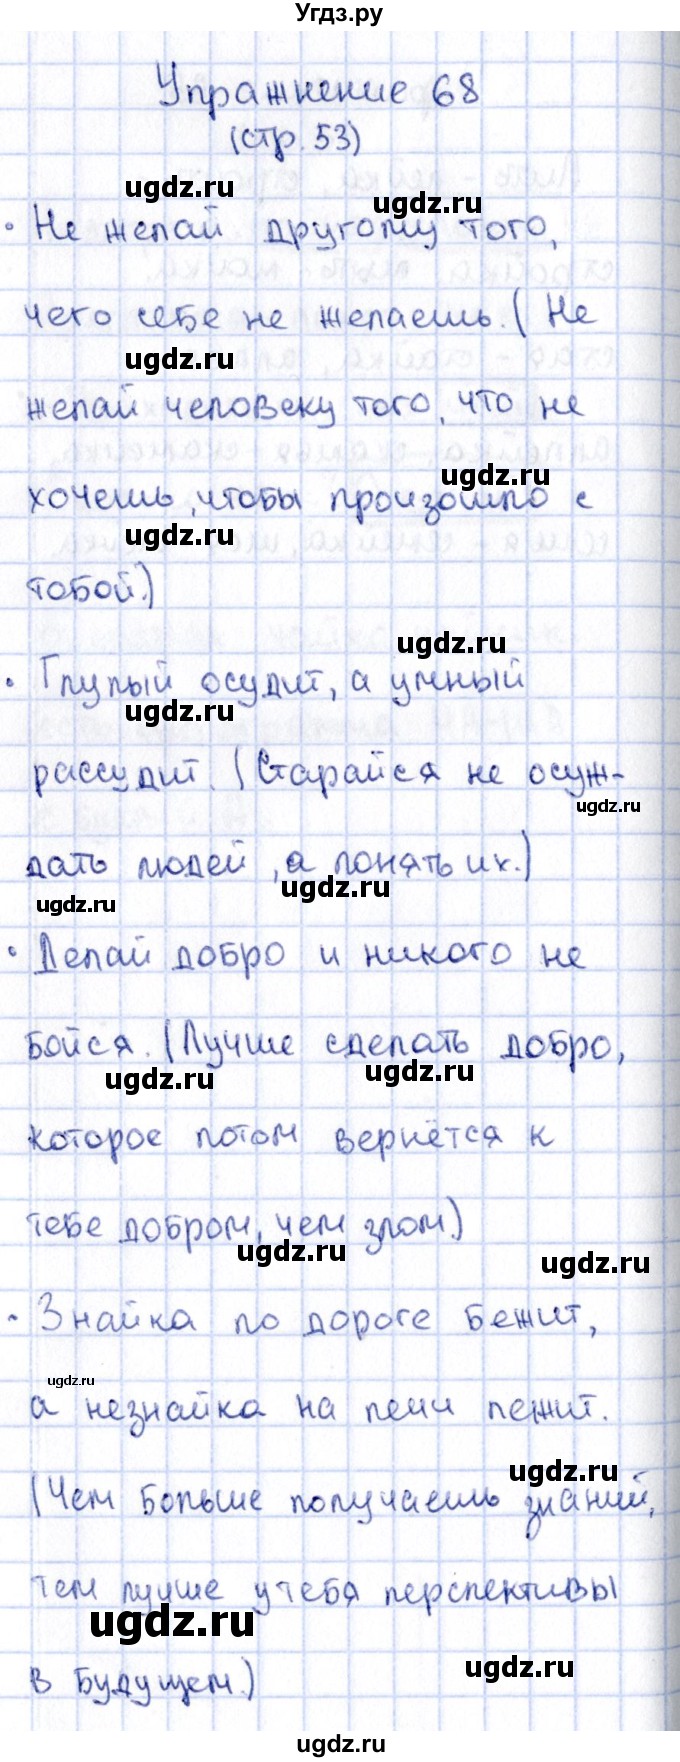 Угдз.ру
Упражнение 68
(стр. 53)
ugdz.ru
ugdz.ru
• Не желай другому того,
чего себе не желаешь. (Не
ugdz.ru
желай человеку того, что не
ugdz.ru
хочешь, чтобы произошло с
ugdz.ru
тобой.)
ugdz.ru
• Глупый осудит, а умный
ugdz.ru
рассудит. (Старайся не осуж-
ugdz.ru
дать людей, а понять их.)
ugdz.ru
ugdz.ru
• Делай добро и никого не
бойся. (Лучше сделать добро,
ugdz.ru
ugdz.ru
которое потом вернётся к
тебе добром, чем злом.)
ugdz.ru
ugdz.ru
• Знайка по дороге бежит,
ugdz.ru
а незнайка на печи лежит.
ugdz.ru
(Чем больше получаешь знаний,
тем лучше у тебя перспективы
ugdz.ru
в будущем.)
ugdz.ru
ugdz.ru